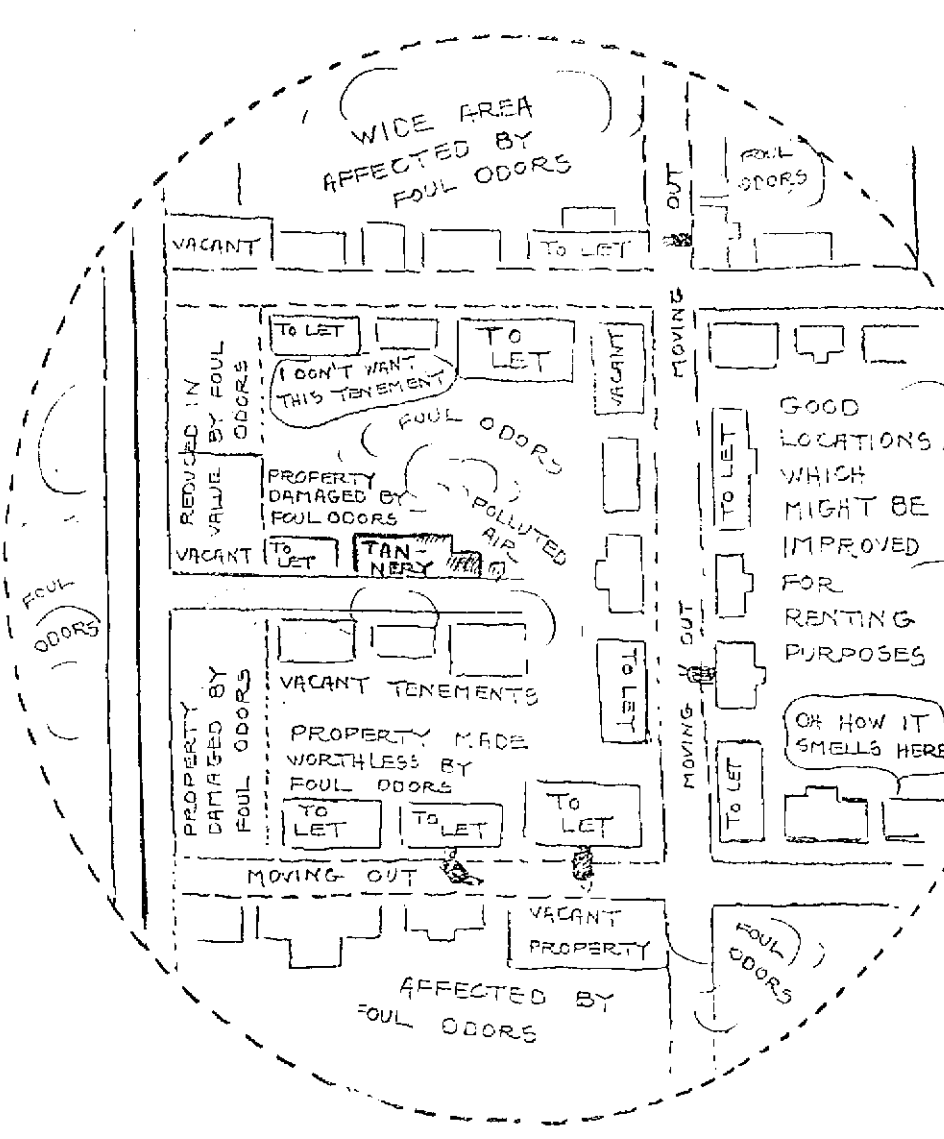 WIDE AREA
AFFECTED BY
FOUL ODORS
FOUL
ODORS
OUT
MOVING
VACANT
TO LET
TO LET
TO
LET
VACANT
I DON'T WANT
THIS TENEMENT
REDUCED IN
VALUE BY FOUL
ODORS
FOUL ODORS
PROPERTY
DAMAGED BY
FOUL ODORS
POLLUTED
AIR
VACANT
TO
LET
TAN-
NERY
TO LET
GOOD
LOCATIONS
WHICH
MIGHT BE
IMPROVED
FOR
RENTING
PURPOSES
FOUL
ODORS
PROPERTY
DAMAGED BY
FOUL ODORS
VACANT TENEMENTS
PROPERTY MADE
WORTHLESS BY
FOUL ODORS
TO LET
MOVING OUT
OH HOW IT
SMELLS HERE
TO
LET
TO LET
TO
LET
TO LET
MOVING OUT
VACANT
PROPERTY
FOUL
ODORS
AFFECTED BY
FOUL ODORS